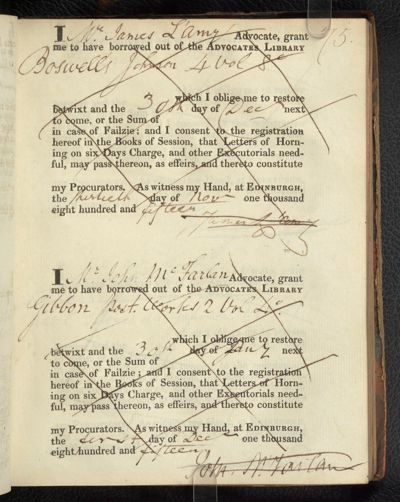 I Mr. James L'Amy Advocate, grant 75.
me to have borrowed out of the ADVOCATES LIBRARY
Boswell's Johnson 4 Vol 8o
which I oblige me to restore
betwixt and the 30th day of Dec next
to come, or the Sum of
in case of Failzie; and I consent to the registration
hereof in the Books of Session, that Letters of Horn-
ing on six Days Charge, and other Executorials need-
ful, may pass thereon, as effeirs, and thereto constitute
my Procurators. As witness my Hand, at EDINBURGH,
the thirtieth day of Nov one thousand
eight hundred and fifteen
James L'Amy
I Mr. John McFarlan Advocate, grant
me to have borrowed out of the ADVOCATES LIBRARY
Gibbon Post. Works 2 Vol 4o.
which I oblige me to restore
betwixt and the 30th day of Jany next
to come, or the Sum of
in case of Failzie; and I consent to the registration
hereof in the Books of Session, that Letters of Horn-
ing on six Days Charge, and other Executorials need-
ful, may pass thereon, as effeirs, and thereto constitute
my Procurators. As witness my Hand, at EDINBURGH,
the first day of Dec one thousand
eight hundred and fifteen
John McFarlan